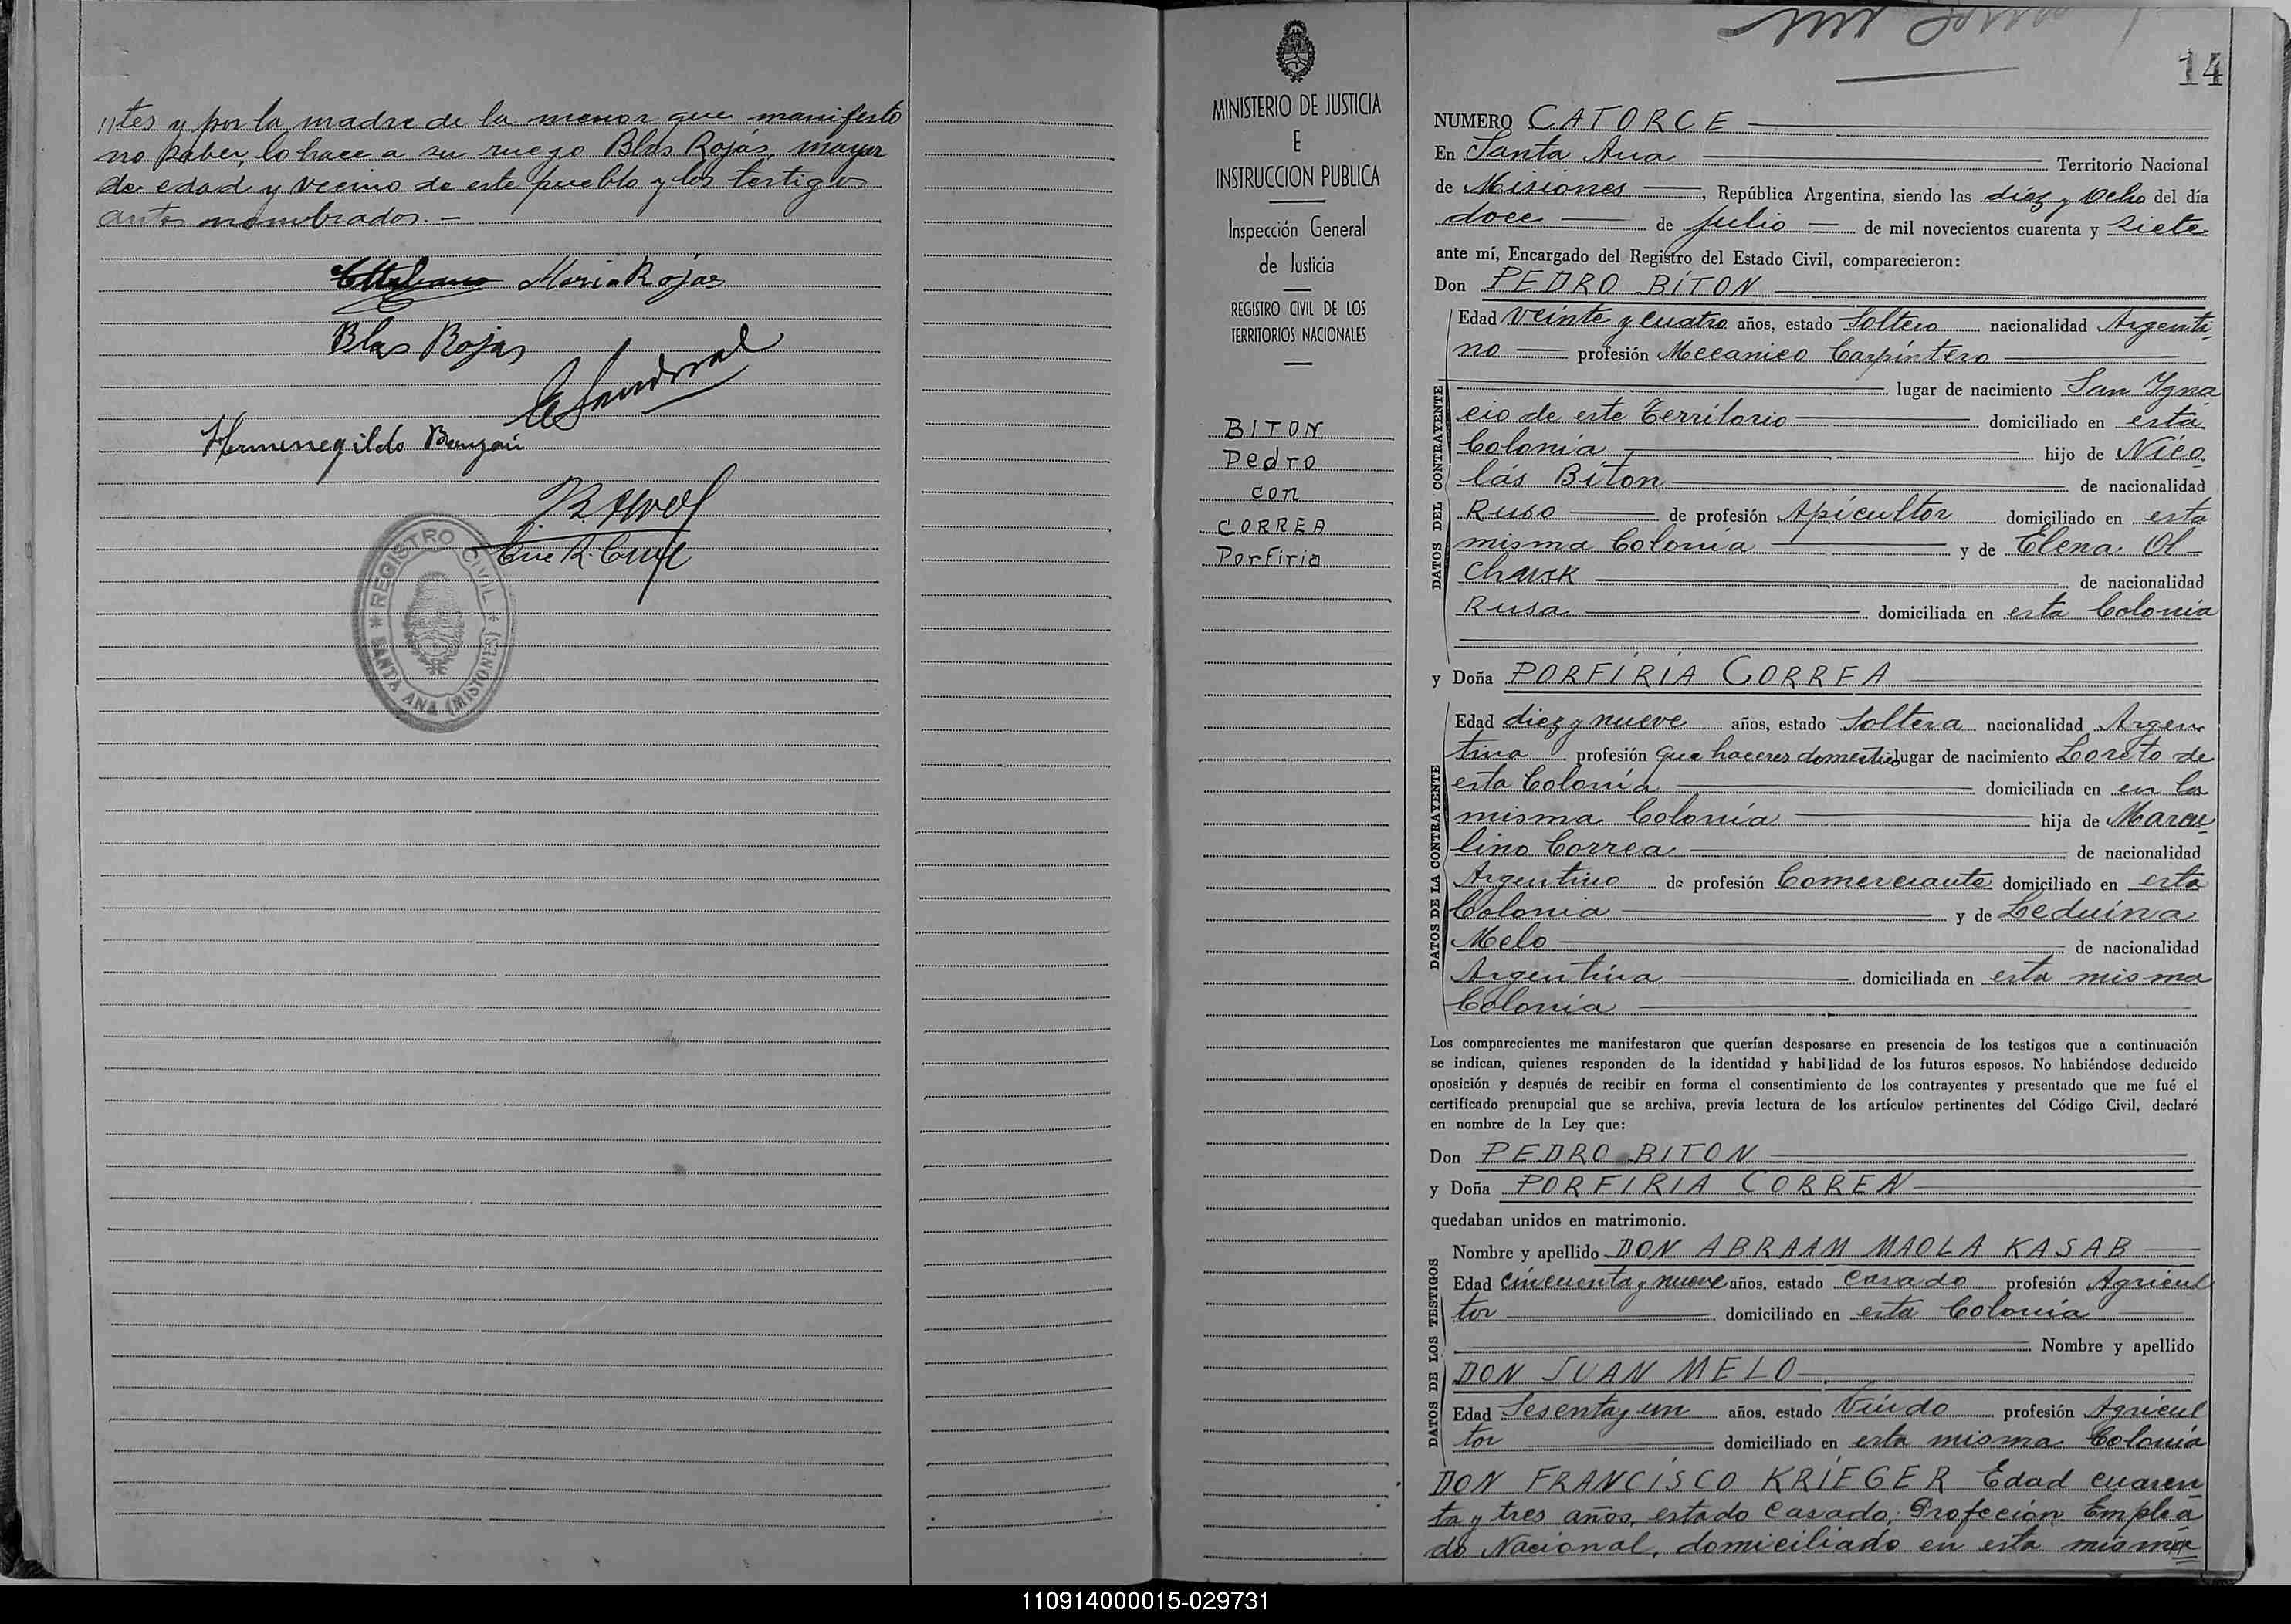 //tes y por la madre de la menor que manifesto
no saber, lo hace a su ruego Blas Rojas, mayor
de edad y vecino de este pueblo y los testigos
antes nombrados.-
Maria Rojas
Blas Rojas
Hermenegildo
REGISTRO CIVIL
SANTA ANA (MISIONES)
MINISTERIO DE JUSTICIA
E
INSTRUCCION PUBLICA
Inspección General
de Justicia
REGISTRO CIVIL DE LOS
TERRITORIOS NACIONALES
BITON
Pedro
con
CORREA
Porfiria
14
NUMERO CATORCE
En Santa Ana Territorio Nacional
de Misiones, República Argentina, siendo las diez y ocho del día
doce de julio de mil novecientos cuarenta y siete
ante mí, Encargado del Registro del Estado Civil, comparecieron:
Don PEDRO BITON
DATOS DEL CONTRAYENTE
Edad veinte y cuatro años, estado Soltero nacionalidad Argenti
no profesión Mecanico Carpintero
lugar de nacimiento San Ygna
cio de este Territorio domiciliado en esta
Colonia hijo de Nico
lás Biton de nacionalidad
Ruso de profesión Apicultor domiciliado en esta
misma Colonia y de Elena Ol-
chusk de nacionalidad
Rusa domiciliada en esta Colonia
y Doña PORFIRIA CORREA
DATOS DE LA CONTRAYENTE
Edad diez y nueve años, estado Soltera nacionalidad Argen
tina profesión Que haceres domestic lugar de nacimiento Loreto de
esta Colonia domiciliada en en la
misma Colonia hija de Marce
lino Correa de nacionalidad
Argentino de profesión Comerciante domiciliado en esta
Colonia y de Leduina
Melo de nacionalidad
Argentina domiciliada en esta misma
Colonia
Los comparecientes me manifestaron que querían desposarse en presencia de los testigos que a continuación
se indican, quienes responden de la identidad y habilidad de los futuros esposos. No habiéndose deducido
oposición y después de recibir en forma el consentimiento de los contrayentes y presentado que me fué el
certificado prenupcial que se archiva, previa lectura de los artículos pertinentes del Código Civil, declaré
en nombre de la Ley que:
Don PEDRO BITON
y Doña PORFIRIA CORREA
quedaban unidos en matrimonio.
DATOS DE LOS TESTIGOS
Nombre y apellido DON ABRAAM MAOLA KASAB
Edad cincuenta y nueve años, estado casado profesión Agricul
tor domiciliado en esta Colonia
Nombre y apellido
DON JUAN MELO
Edad Sesenta y un años, estado Viudo profesión Agricul
tor domiciliado en esta misma Colonia
DON FRANCISCO KRIEGER Edad cuaren
ta y tres años, estado casado, Profeción Emplea
do Nacional, domiciliado en esta misma
110914000015-029731